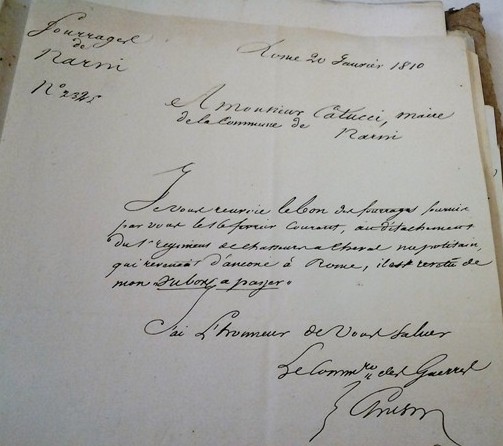 fourrages
de
Narni
N° 2325
Rome 20 Janvier 1810
A monsieur Catucci, maire
de la Commune de
Narni
Je vous renvoie le bon des fourrages fournis
par vous le 16 Courant, au détachement
du 1er regiment de chasseurs a cheval napolitain,
qui revenoit d'ancone à Rome, il est revetu de
mon Vu bon a payer.
J'ai L'honneur de Vous saluer
Le Commre des Guerres